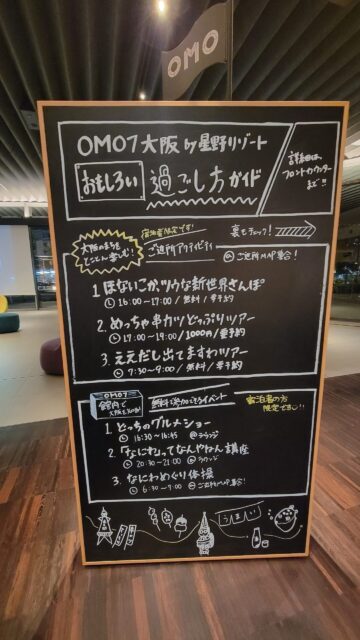 OMO
OMO7大阪 by 星野リゾート
おもしろい 過ごし方ガイド
詳細は、
フロントカウンター
まで!!
大阪のまちを
とことん楽しむ!
宿泊者限定です!
ご近所アクティビティ
裏もチェック!
@ご近所MAP集合!
1. ほないこか、ツウな新世界さんぽ
16:00~17:00 / 無料 / 要予約
2. めっちゃ串カツどっぷりツアー
17:00~19:00 / 1000円 / 要予約
3. ええだし出てますわツアー
9:30~ / 無料 / 要予約
OMO7
館内で
無料で参加できるイベント
宿泊者の方
限定です!!
1. どっちのグルメショー
16:30~16:45 @ラウンジ
2. 「なにわってなんやねん」講座
20:30~21:00 @ラウンジ
3. なにわめぐり体操
@ご近所MAP集合!
うまい!